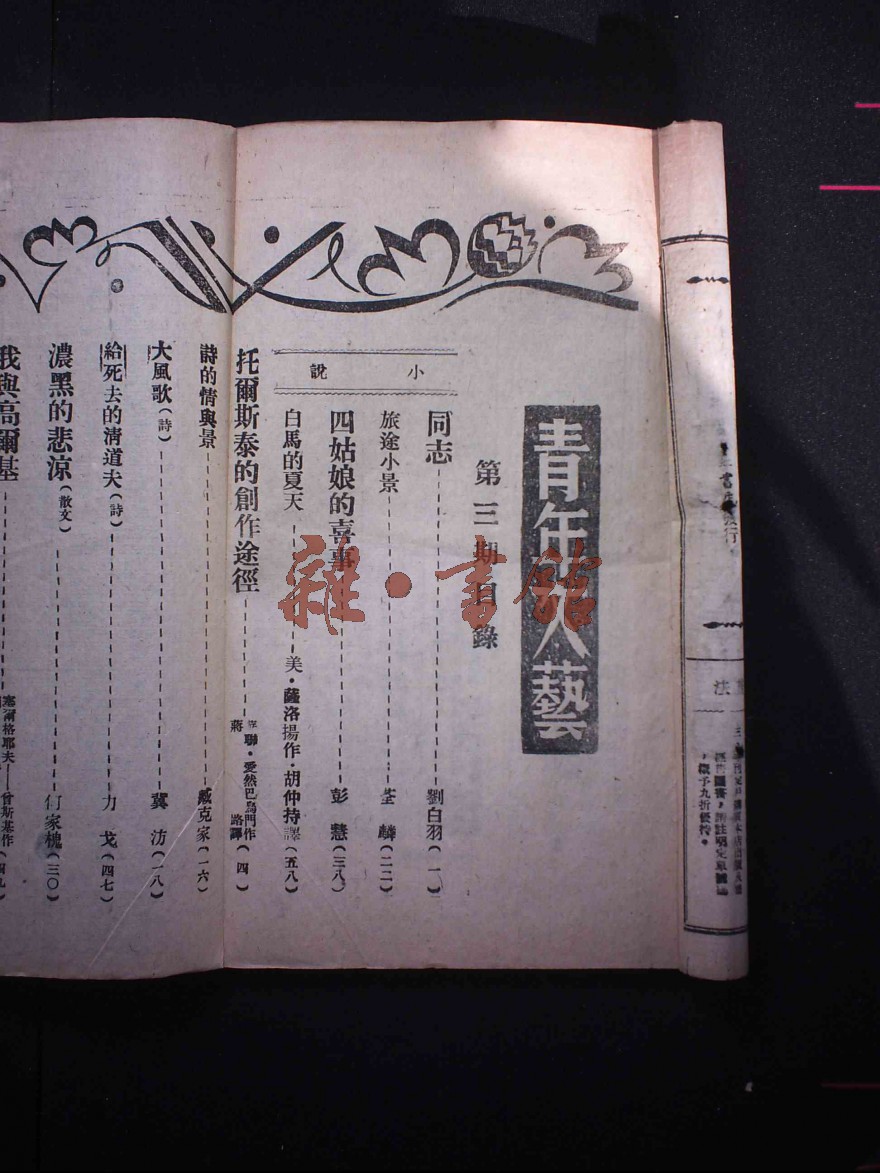 青年文藝
第三期目錄
小說
同志 劉白羽(一)
旅途小景 荃麟(二二)
四姑娘的喜事 彭慧(三八)
白馬的夏天 美·薩洛揚作·胡仲持譯(五八)
托爾斯泰的創作途徑 聯·愛然巴烏門作 蔣路譯(四)
詩的情與景 臧克家(一六)
大風歌(詩) 冀汸(一八)
給死去的清道夫(詩) 力戈(四七)
濃黑的悲涼(散文) 何家槐(三〇)
我與高爾基 塞爾格耶夫——曾斯基作(四九)
法
·概予九折優待。
雜·書館